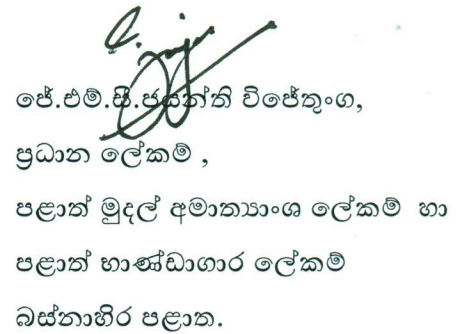 ජේ.එම්.සී.ජයන්ති විජේතුංග,
ප්‍රධාන ලේකම් ,
පළාත් මුදල් අමාත්‍යාංශ ලේකම් හා
පළාත් භාණ්ඩාගාර ලේකම්
බස්නාහිර පළාත.